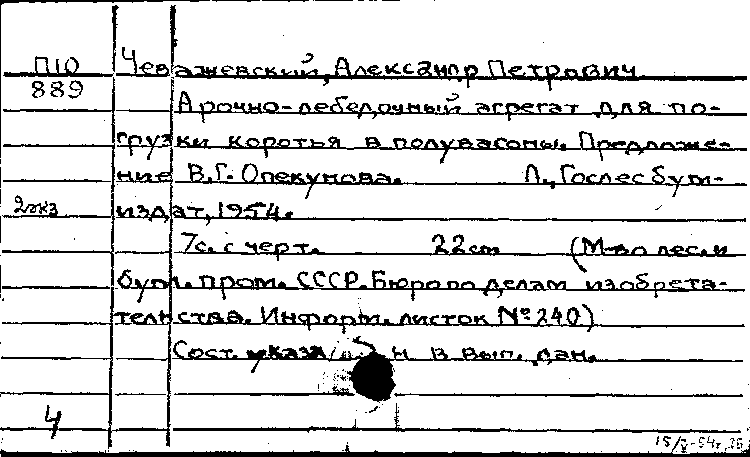 П10
889
Чеважевский, Александр Петрович
Арочно-лебедочный агрегат для по-
грузки коротья в полувагоны. Предложе-
ние В.Г. Опекунова. Л., Гослесбум-
2экз
издат, 1954.
7с. с черт. 22 см (М-во лес. и
бум. пром. СССР. Бюро по делам изобрета-
тельства. Информ. листок № 240)
Сост. указан в вып. дан.
4
15/V-54г.